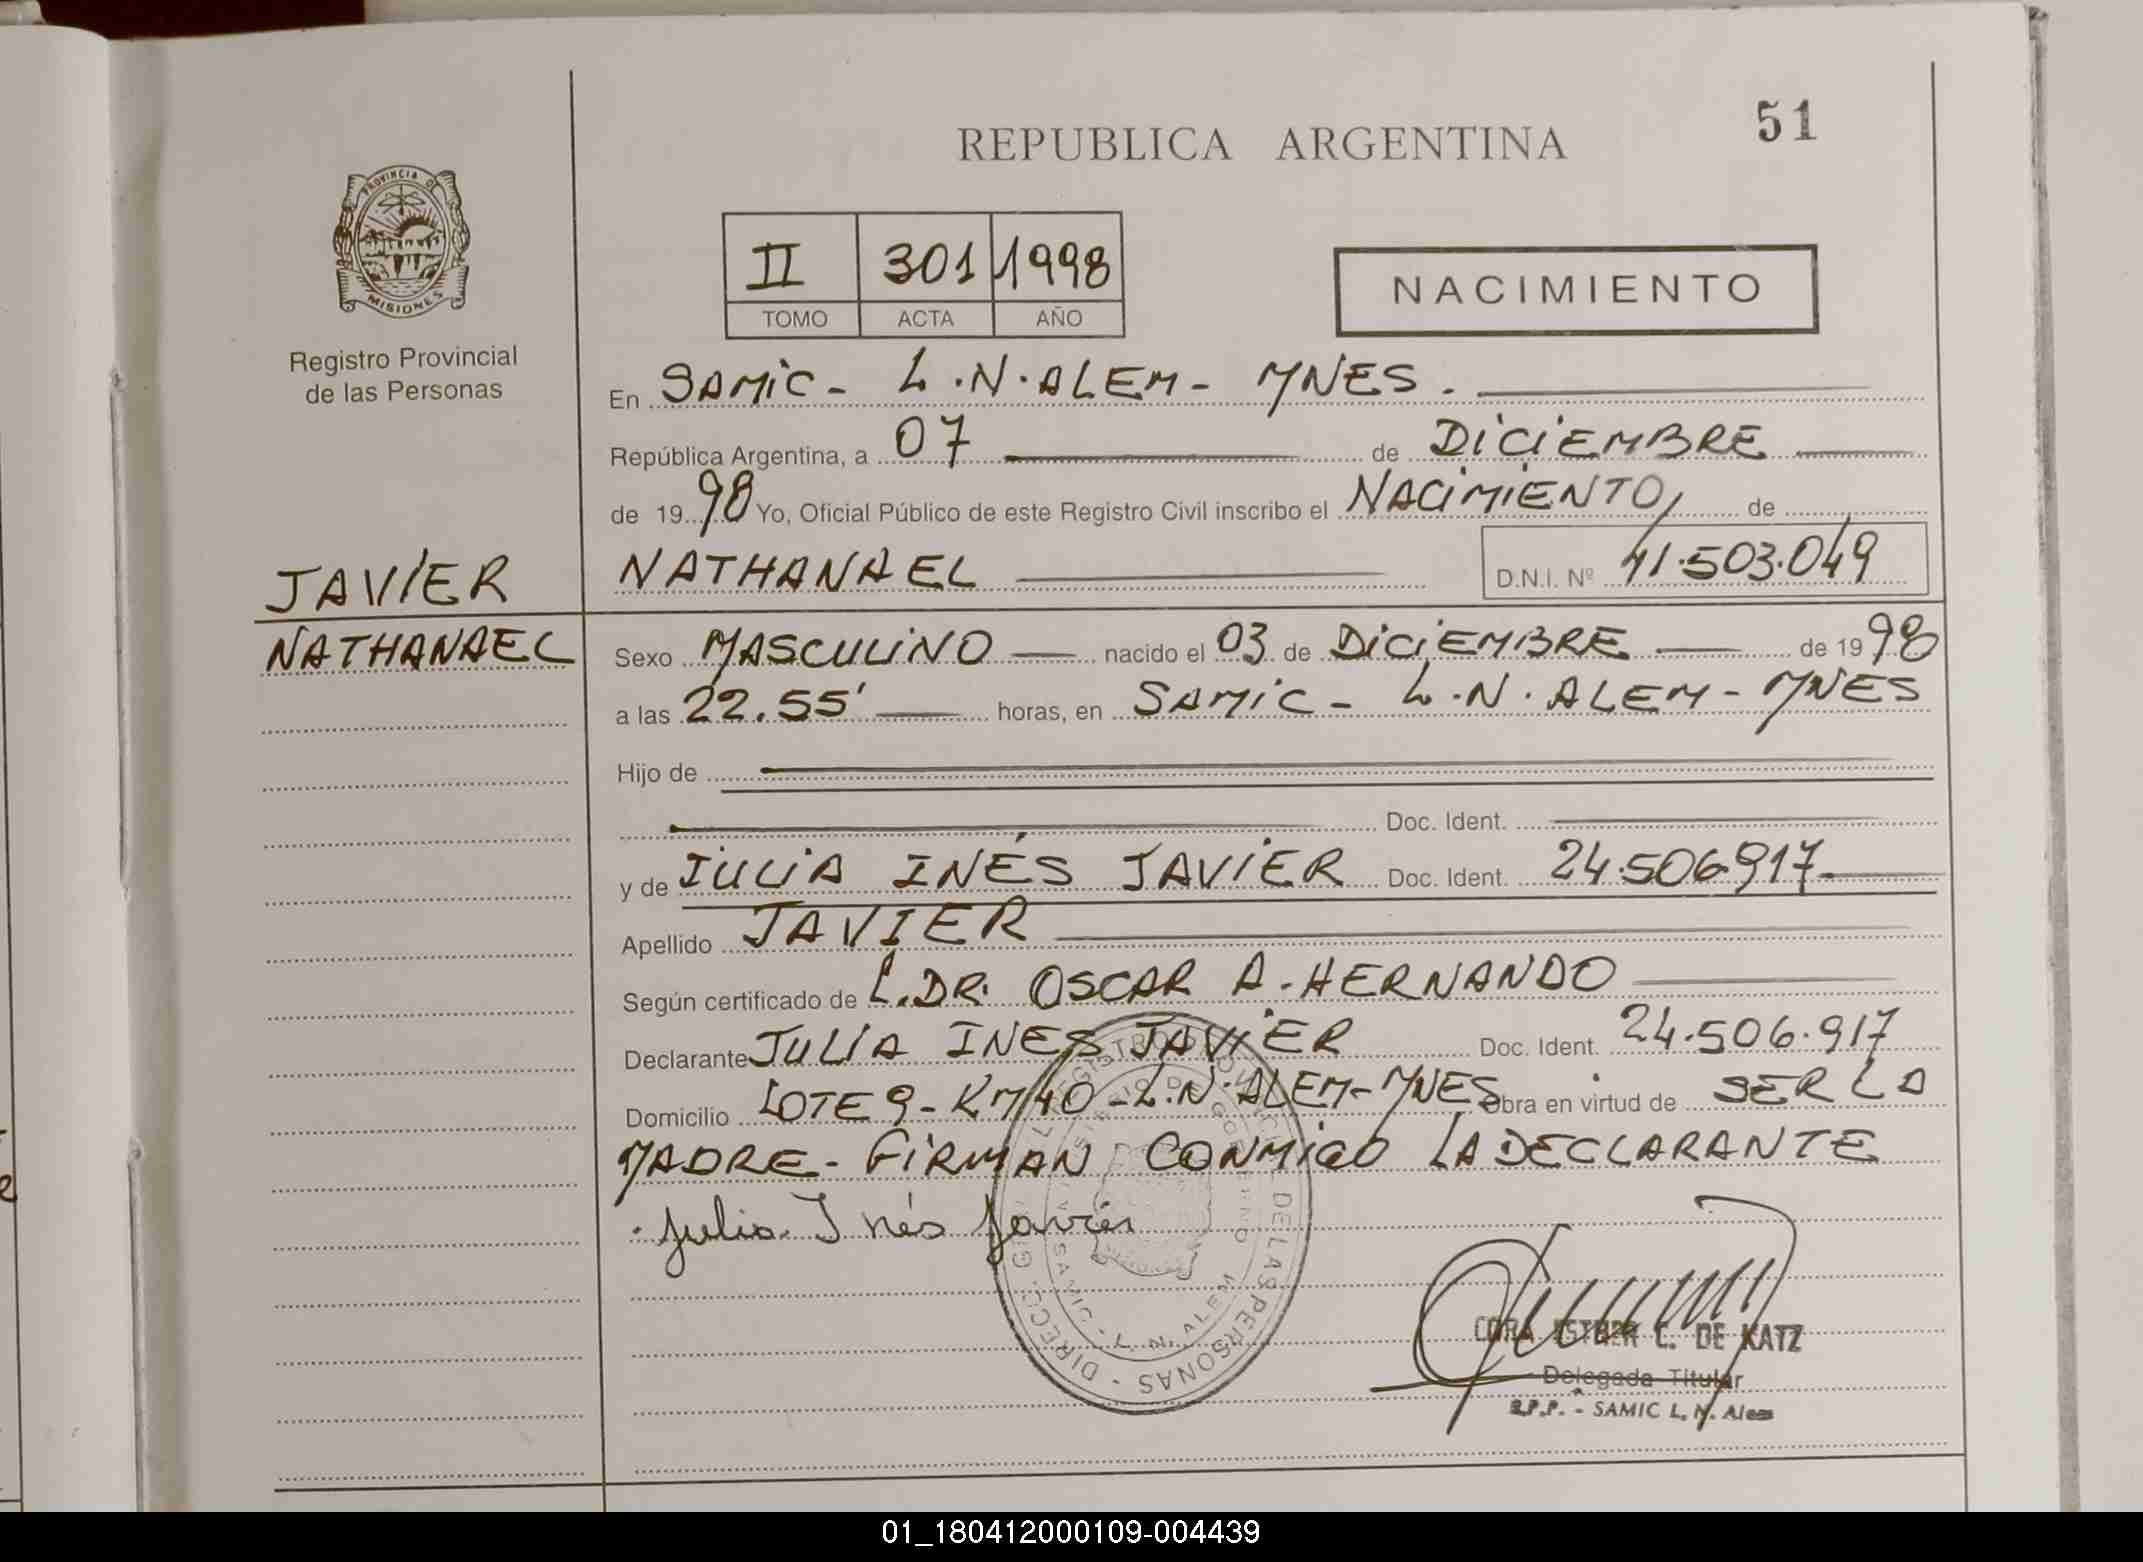 51
REPUBLICA ARGENTINA
PROVINCIA DE
MISIONES
Registro Provincial
de las Personas
II 301 1998
TOMO ACTA AÑO
NACIMIENTO
En SAMIC - L.N. ALEM - MNES.
República Argentina, a 07 de DICIEMBRE
de 1998 Yo, Oficial Público de este Registro Civil inscribo el NACIMIENTO, de
NATHANAEL D.N.I. Nº 41.503.049
JAVIER
NATHANAEL
Sexo MASCULINO nacido el 03 de DICIEMBRE de 1998
a las 22.55' horas, en SAMIC - L.N. ALEM - MNES
Hijo de
Doc. Ident.
y de JULIA INÉS JAVIER Doc. Ident. 24.506.917
Apellido JAVIER
Según certificado de L. DR. OSCAR A. HERNANDO
Declarante JULIA INES JAVIER Doc. Ident. 24.506.917
Domicilio LOTE 9 - KM 40 - L.N. ALEM - MNES Obra en virtud de SER LA
MADRE - FIRMAN CONMIGO LA DECLARANTE
Julia Inés Javier
DE LAS PERSONAS - DIRECC. GRAL.
SAMIC - L. N. ALEM
CORA ESTHER C. DE KATZ
Delegada Titular
R.P.P. - SAMIC L. N. Alem
01_180412000109-004439